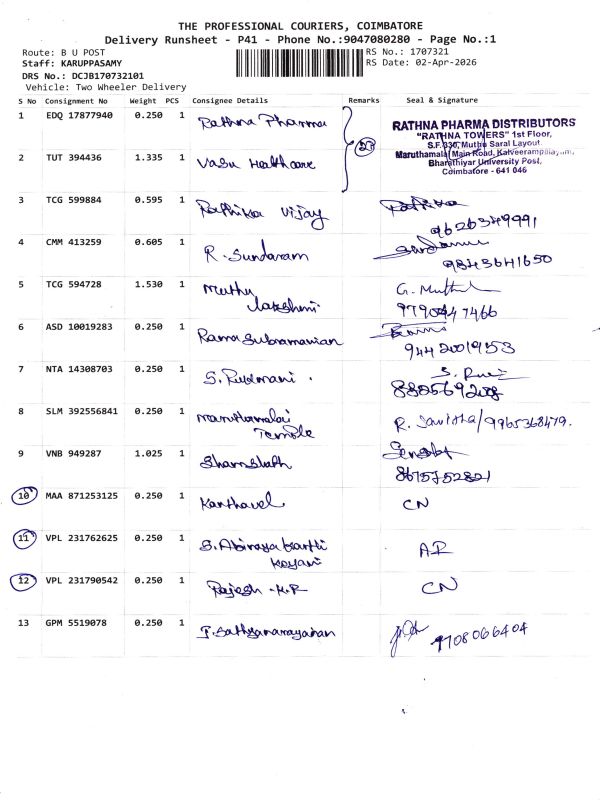 THE PROFESSIONAL COURIERS, COIMBATORE
Delivery Runsheet - P41 - Phone No.:9047080280 - Page No.:1
Route: B U POST
RS No.: 1707321
Staff: KARUPPASAMY
RS Date: 02-Apr-2026
DRS No.: DCJB170732101
Vehicle: Two Wheeler Delivery
S No Consignment No Weight PCS Consignee Details Remarks Seal & Signature
1 EDQ 17877940 0.250 1 Rathna Pharma
RATHNA PHARMA DISTRIBUTORS
"RATHNA TOWERS" 1st Floor,
S.F.330, Muthu Saral Layout
Maruthamalai Main Road, Kalveerampalayam,
Bharathiyar University Post,
Coimbatore - 641 046
2 TUT 394436 1.335 1 Vasu Healthcare
3 TCG 599884 0.595 1 Rathika Vijay Rathika
9626349991
4 CMM 413259 0.605 1 R. Sundaram
9843641650
5 TCG 594728 1.530 1 Muthu G.
Lakshmi
6 ASD 10019283 0.250 1 Rama Subramanian
9442001953
7 NTA 14308703 0.250 1 S. Rukmani .
8 SLM 392556841 0.250 1 Maruthamalai R. /9965368479.
Temple
9 VNB 949287 1.025 1
10 MAA 871253125 0.250 1 Kanthavel CN
11 VPL 231762625 0.250 1 S. Abinaya
12 VPL 231790542 0.250 1 Rajesh CN
13 GPM 5519078 0.250 1 P. Sathyanarayanan 9708066404